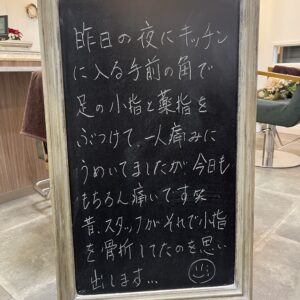 昨日の夜にキッチン
に入る手前の角で
足の小指と薬指を
ぶつけて、一人痛みに
うめいてましたが今日も
もちろん痛いです笑
昔、スタッフがそれで小指
を骨折してたのを思い
出します...